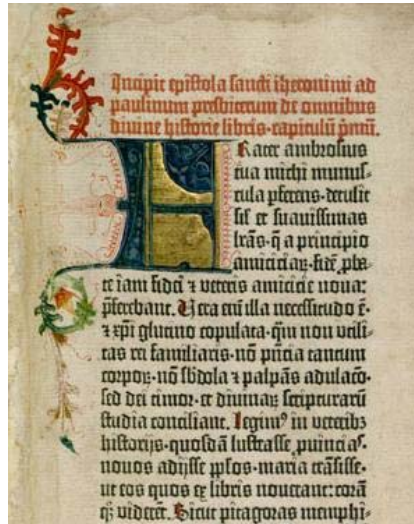 Incipit epistola sancti iheronimi ad
paulinum presbiterum de omnibus
divine historie libris·capitulū p̄mū.
FRater ambrosius
tua michi munus-
cula ꝑferens·detulit
sil̄ et suauissimas
lr̄as·q̄ a principio
amiciciaꝝ·fidē ꝓba-
te iam fidei ⁊ veteris amicicie noua:
p̄ferebant. Uera eni illa necessitudo ē·
⁊ xp̄i glutino copulata·qm̄ non vtili-
tas rei familiaris·nō p̄ntia tantum
corpoꝝ·nō sb̄dola ⁊ palpās adulacō·
sed dei timor·et diuinaꝝ scripturarū
studia conciliant. Legimꝰ in veteribꝫ
historijs·quosdā lustrasse ꝓuincias·
nouos adijsse pp̄los·maria trāsisse·
ut eos quos ex libris nouerant: corā
qꝫ viderēt. Sicut pitagoras memphi-